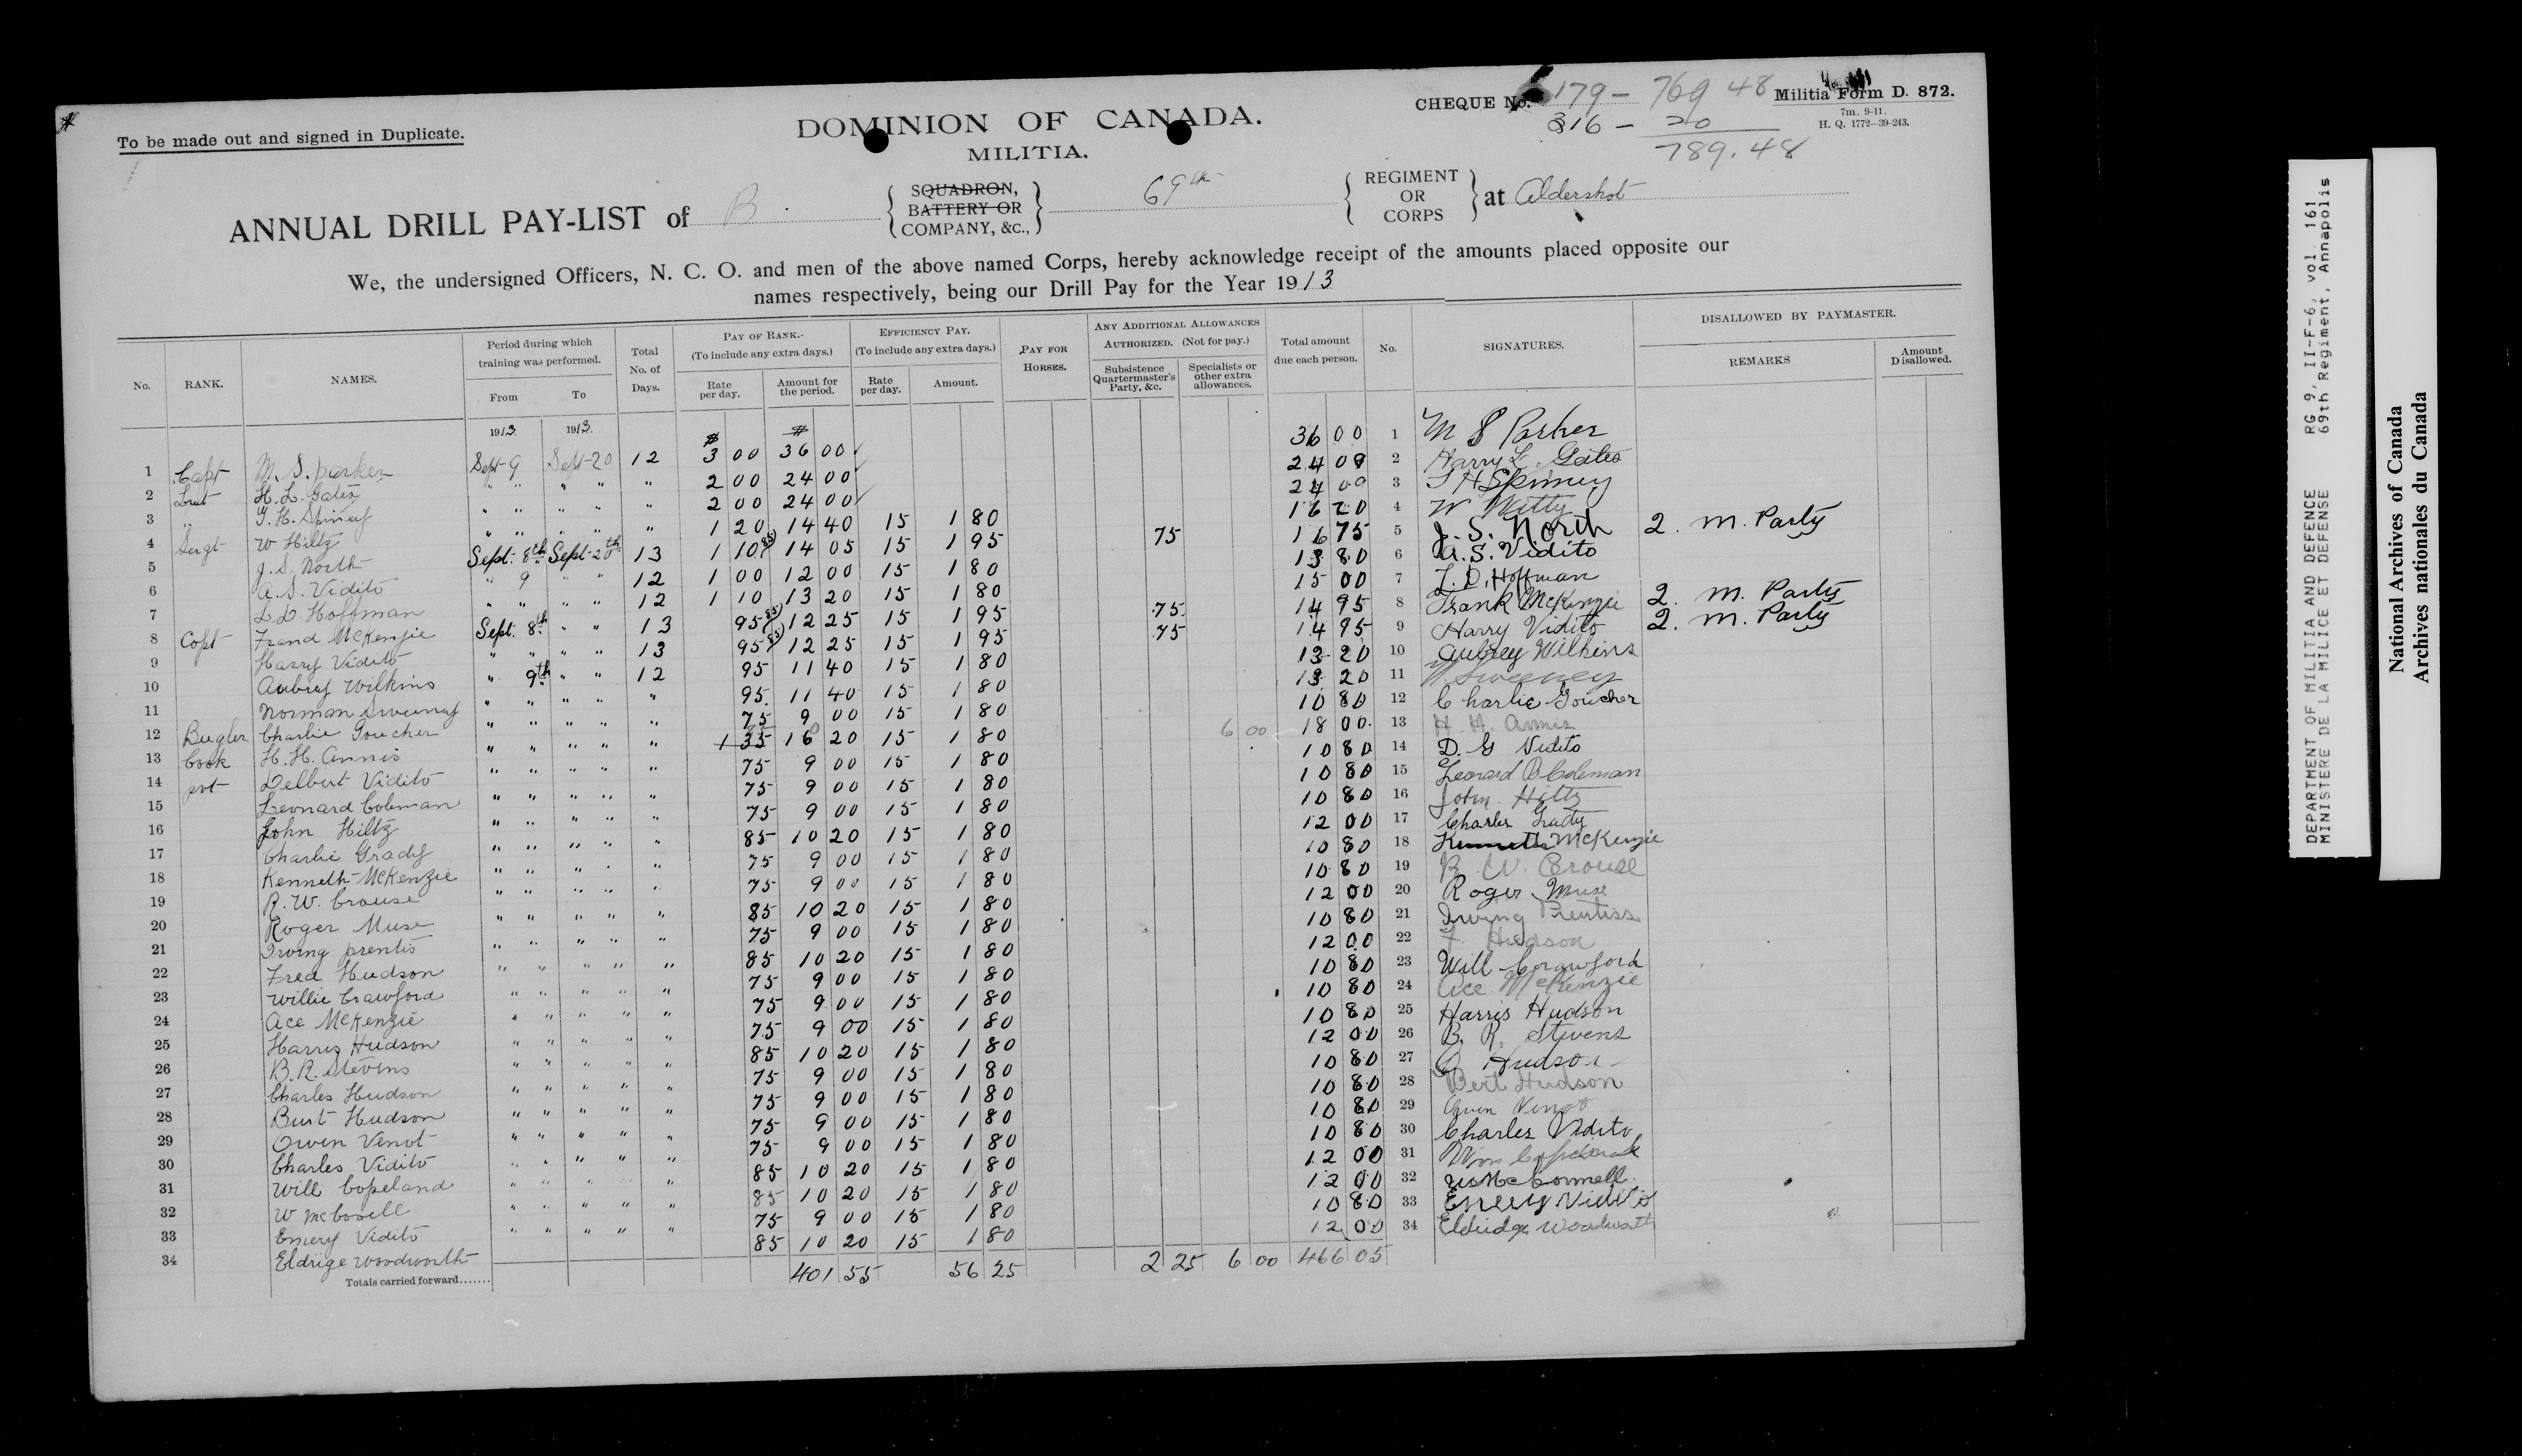 To be made out and signed in Duplicate.
DOMINION OF CANADA.
MILITIA.
CHEQUE No. 179 - 769 48
316 - 20
789.48
Militia Form D. 872.
7m. 9-11.
H. Q. 1772-39-243.
ANNUAL DRILL PAY-LIST of B. { SQUADRON, BATTERY OR COMPANY, &C., } 69th { REGIMENT OR CORPS } at Aldershot
We, the undersigned Officers, N. C. O. and men of the above named Corps, hereby acknowledge receipt of the amounts placed opposite our
names respectively, being our Drill Pay for the Year 1913
No. RANK. NAMES. Period during which training was performed. From To Total No. of Days. PAY OF RANK. (To include any extra days.) Rate per day. Amount for the period. EFFICIENCY PAY. (To include any extra days.) Rate per day. Amount. PAY FOR HORSES. ANY ADDITIONAL ALLOWANCES AUTHORIZED. (Not for pay.) Subsistence Quartermaster's Party, &c. Specialists or other extra allowances. Total amount due each person. No. SIGNATURES. DISALLOWED BY PAYMASTER. REMARKS Amount Disallowed.
1913. 1913. $ $
1 Capt M. S. parker Sept 9 Sept 20 12 3 00 36 00 36 00 1 M S Parker
2 Lieut H. L. Gates " " " " " 2 00 24 00 24 00 2 Harry L. Gates
3 " " " " " " 2 00 24 00 24 00 3
4 Sergt W Hiltz " " " " " 1 20 14 40 15 1 80 16 20 4
5 J. S. North Sept. 8th Sept 20th 13 1 10 85) 14 05 15 1 95 75 16 75 5 J. S. North 2. M. Party
6 A. S. Vidito " 9 " " 12 1 00 12 00 15 1 80 13 80 6 A. S. Vidito
7 L. D. Hoffman " " " " 12 1 10 13 20 15 1 80 15 00 7 L. D. Hoffman
8 Copt Frand McKenzie Sept. 8th " " 13 95 85) 12 25 15 1 95 .75 14 95 8 Frank McKenzie 2. M. Party
9 Harry Vidito " " " " 13 95 85) 12 25 15 1 95 .75 14 95 9 Harry Vidito 2. M. Party
10 Aubrey Wilkins " 9th " " 12 95 11 40 15 1 80 13 20 10 Aubrey Wilkins
11 Norman Sweeney " " " " " 95 11 40 15 1 80 13 20 11 N. Sweeney
12 Bugler Charlie Goucher " " " " " 75 9 00 15 1 80 10 80 12 Charlie Goucher
13 Cook H. H. Annis " " " " " 1 35 16 20 15 1 80 6 00 18 00 13 H. H. Annis
14 pvt Delbert Vidito " " " " " 75 9 00 15 1 80 10 80 14 D. G Vidito
15 Leonard Coleman " " " " " 75 9 00 15 1 80 10 80 15 Leonard B Coleman
16 John Hiltz " " " " " 75 9 00 15 1 80 10 80 16 John Hiltz
17 Charlie Grady " " " " " 85 10 20 15 1 80 12 00 17 Charles Grady
18 Kenneth McKenzie " " " " " 75 9 00 15 1 80 10 80 18 Kenneth McKenzie
19 R. W. Crouse " " " " " 75 9 00 15 1 80 10 80 19 R. W. Crouse
20 Roger Muse " " " " " 85 10 20 15 1 80 12 00 20 Roger Muse
21 Irving prentis " " " " " 75 9 00 15 1 80 10 80 21 Irving Prentiss
22 Fred Hudson " " " " " 85 10 20 15 1 80 12 00 22 F. Hudson
23 Willie Crawford " " " " " 75 9 00 15 1 80 10 80 23 Will Crawford
24 Ace McKenzie " " " " " 75 9 00 15 1 80 10 80 24 Ace McKenzie
25 Harris Hudson " " " " " 75 9 00 15 1 80 10 80 25 Harris Hudson
26 B. R. Stevens " " " " " 85 10 20 15 1 80 12 00 26 B. R. Stevens
27 Charles Hudson " " " " " 75 9 00 15 1 80 10 80 27 C Hudson
28 Burt Hudson " " " " " 75 9 00 15 1 80 10 80 28 Bert Hudson
29 Owen Venot " " " " " 75 9 00 15 1 80 10 80 29 Owen Venot
30 Charles Vidito " " " " " 75 9 00 15 1 80 10 80 30 Charles Vidito
31 Will Copeland " " " " " 85 10 20 15 1 80 12 00 31
32 W " " " " " 85 10 20 15 1 80 12 00 32
33 Emery Vidito " " " " " 75 9 00 15 1 80 10 80 33 Emery Vidito
34 Eldrige Woodworth 85 10 20 15 1 80 12 00 34 Eldridge Woodworth
Totals carried forward....... 401 55 56 25 2 25 6 00 466 05
DEPARTMENT OF MILITIA AND DEFENCE RG 9, II-F-6, vol. 161
MINISTERE DE LA MILICE ET DEFENSE 69th Regiment, Annapolis
National Archives of Canada
Archives nationales du Canada